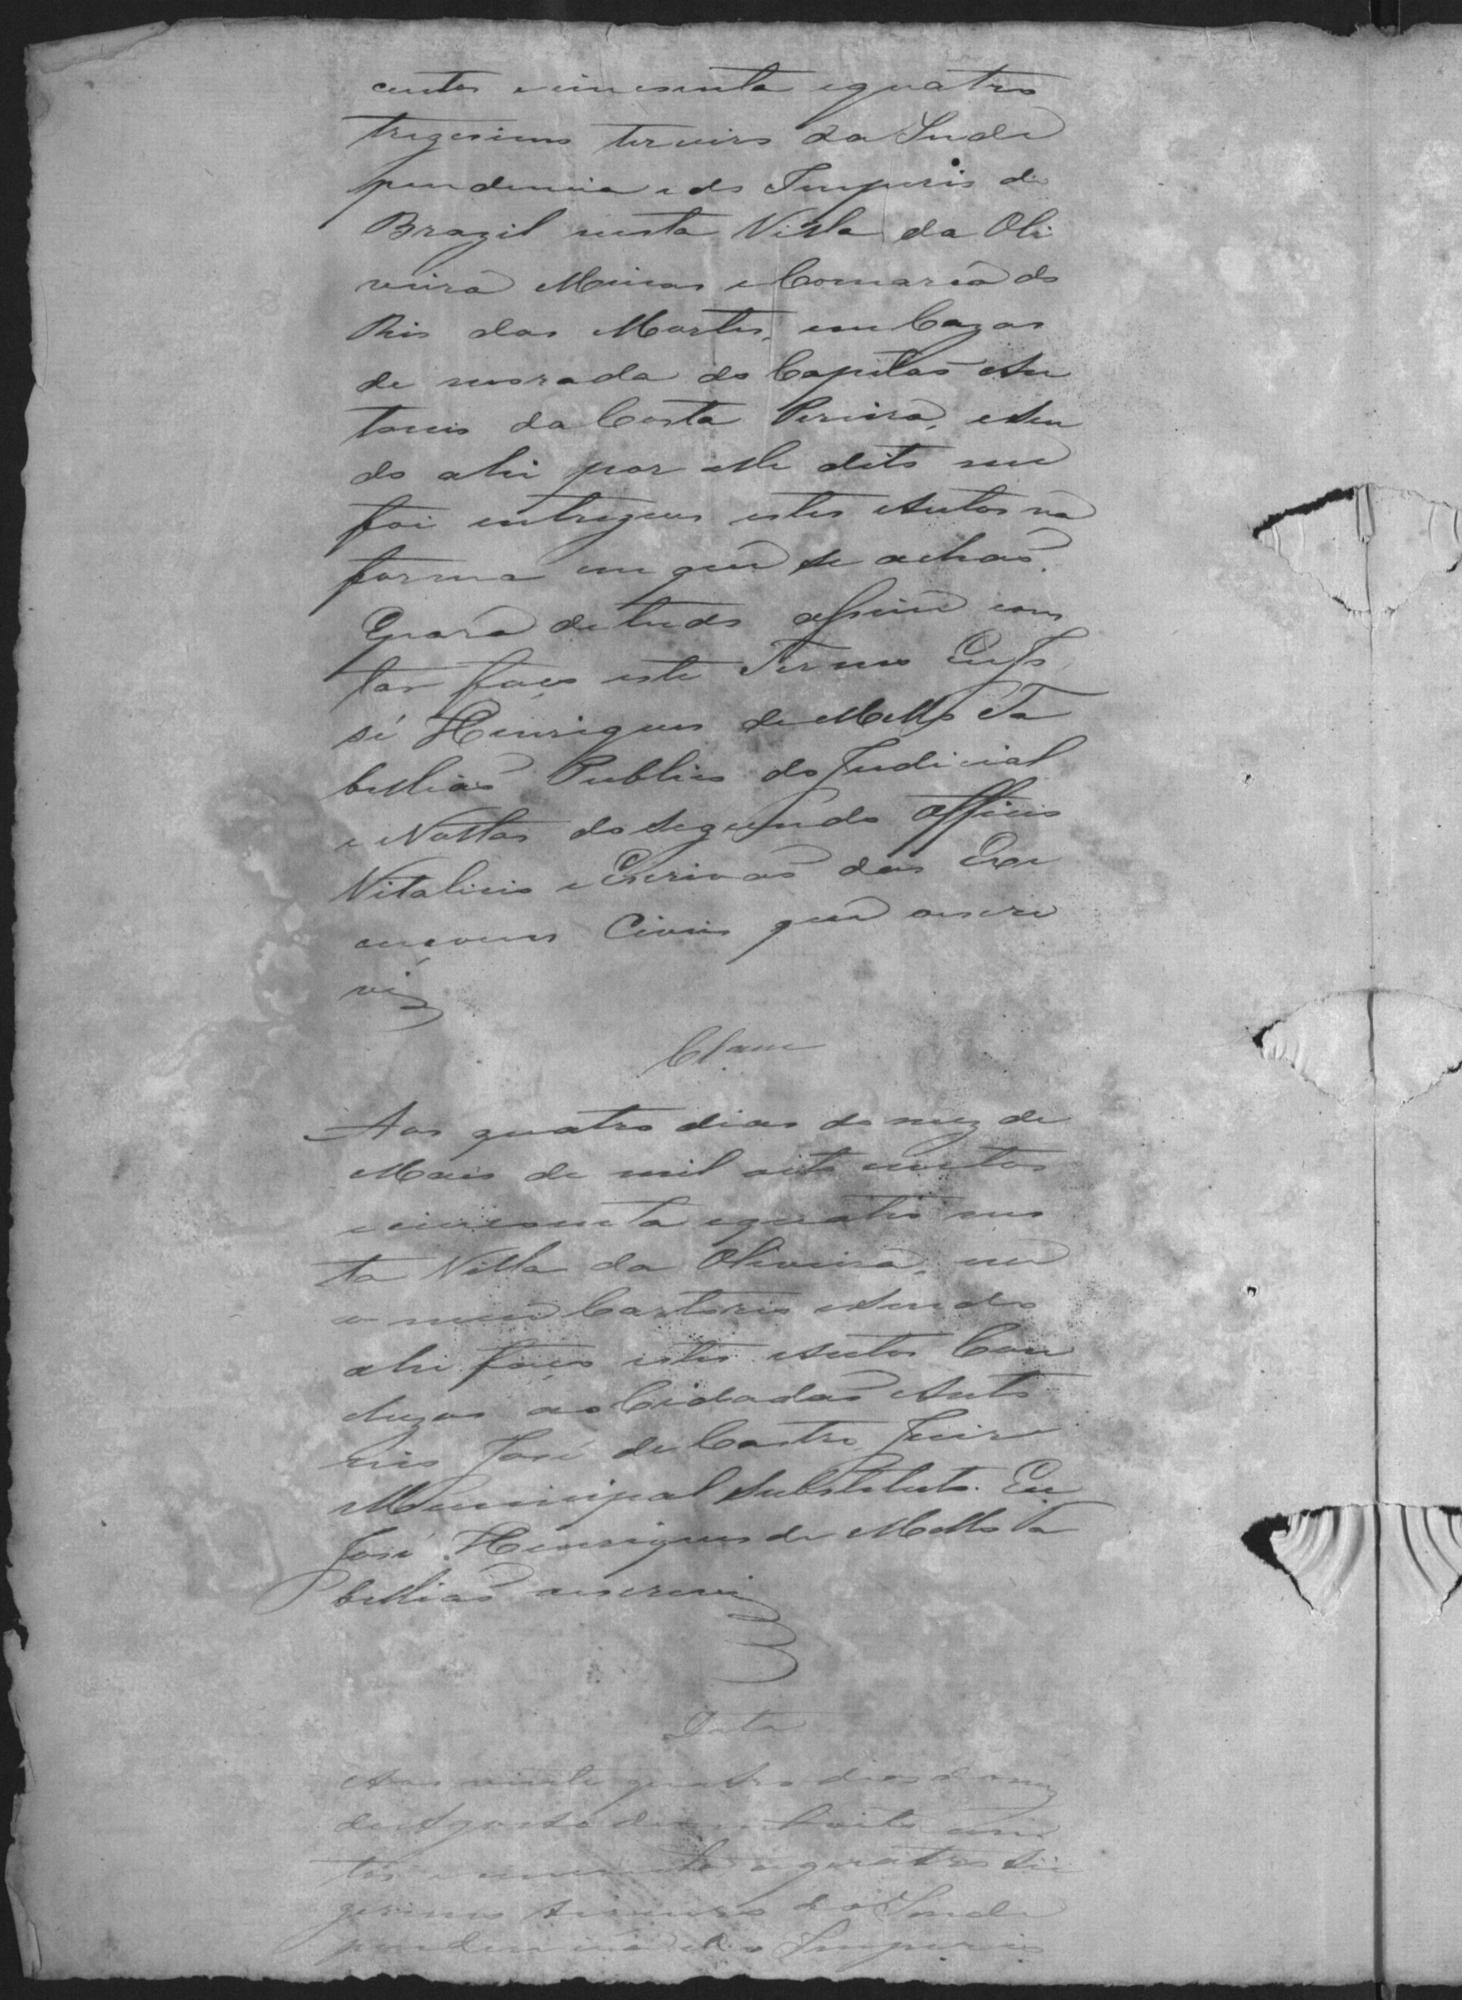 centos e cincoenta equatro
trigesimo terceiro da Inde
pendencia e do Imperio do
Brazil nesta Villa da Oli
veira Minas e Comarca do
Rio das Mortes, em Cazas
de morada do Capitão An
tonio da Costa Pereira, e sen
do ahi por elle dito me
foi entregue estes Autos na
forma em que se achão.
E para de tudo assim cons
tar faço este Termo Eu Jo
sé Henriques de Mello Ta
bellião Publico do Judicial
e Nottas do segundo Officio
Vitalicio e Escrivão das Exe
cuçoens Civeis que o escre
vi
Clam
Aos quatro dias do mez de
Maio de mil oito centos
e cincoenta equatro nes
ta Villa da Oliveira, em
o meu Cartorio e sendo
ahi faço estes Autos Con
cluzos ao Cidadão Anto
nio José de Castro Juiz
Municipal Substituto. Eu
José Henriques de Mello Ta
bellião o escrevi
Data
Aos vinte quatro dias do mez
de Agosto de mil oito cen
tos e cincoenta e quatro tri
gesimo terceiro da Inde
pendencia e do Imperio